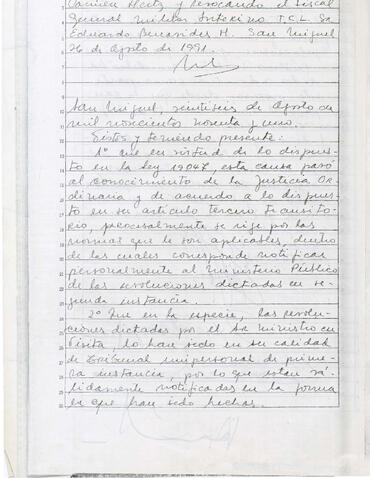 Carmen Hertz y revocando el Fiscal
General Militar Interino T.C.L. Sr
Eduardo Benavides H. San Miguel
26 de Agosto de 1991.
San Miguel, veintiséis de Agosto de
mil novecientos noventa y uno.
Vistos y teniendo presente:
1° que en virtud de lo dispues-
to en la ley 19047, esta causa pasó
al conocimiento de la Justicia Or-
dinaria y de acuerdo a lo dispues-
to en su artículo tercero transito-
rio, procesalmente se rije por las
normas que le son aplicables, dentro
de las cuales corresponde notificar
personalmente al Ministerio Público
de las resoluciones dictadas en se-
gunda instancia.
2° Que en la especie, las resolu-
ciones dictadas por el Sr Ministro en
Visita, lo han sido en su calidad
de Tribunal unipersonal de prime-
ra instancia, por lo que están vá-
lidamente notificadas en la forma
en que han sido hechas.